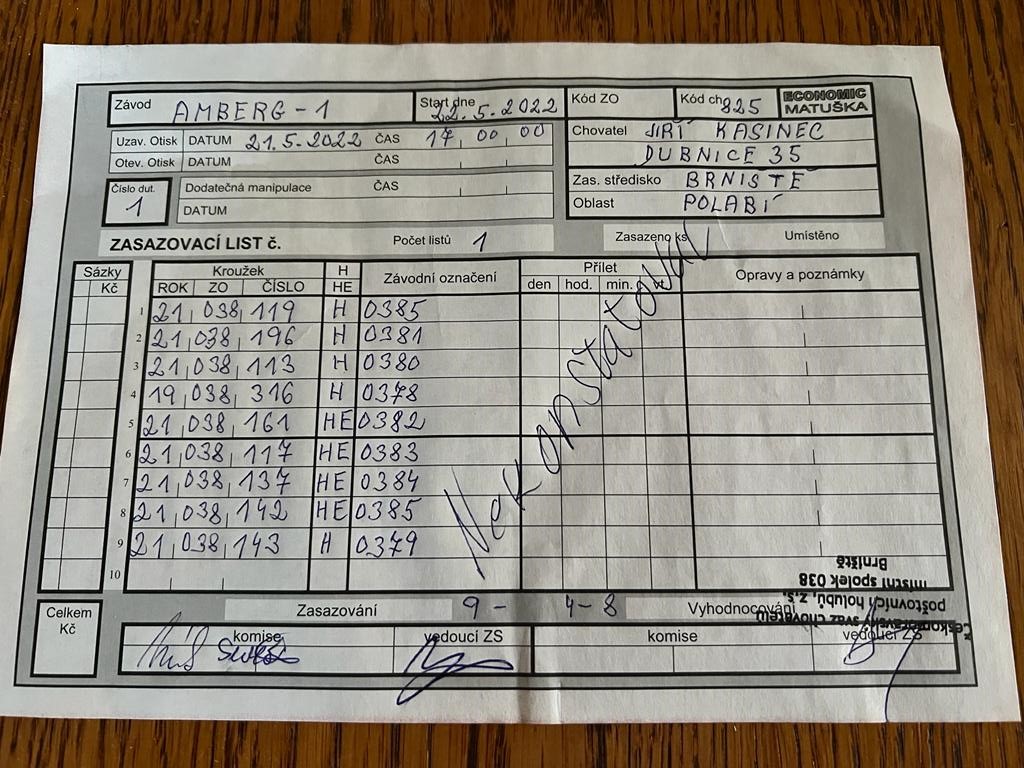 Závod AMBERG-1 Start dne 22.5.2022 Kód ZO Kód ch 825 ECONOMIC MATUŠKA
Uzav. Otisk DATUM 21.5.2022 ČAS 17 00 00 Chovatel JIŘÍ KASINEC
Otev. Otisk DATUM ČAS DUBNICE 35
Číslo dut. 1 Dodatečná manipulace ČAS Zas. středisko BRNIŠTĚ
DATUM Oblast POLABÍ
ZASAZOVACÍ LIST č. Počet listů 1 Zasazeno ks Umístěno
Sázky Kroužek H Závodní označení Přílet Opravy a poznámky
Kč ROK ZO ČÍSLO HE den hod. min.
1 21 038 119 H 0385
2 21 038 196 H 0381
3 21 038 113 H 0380
4 19 038 316 H 0378
5 21 038 161 HE 0382
6 21 038 117 HE 0383
7 21 038 137 HE 0384
8 21 038 142 HE 0385
9 21 038 143 H 0379
10
Nekonstatoval
Celkem Kč Zasazování 9 - 4-8 Vyhodnocování
komise vedoucí ZS komise vedoucí ZS
Českomoravský svaz chovatelů
poštovních holubů, z.s.
místní spolek 038
Brniště